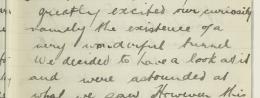 greatly excited our curiosity
namely the existence of a
very wonderful tunnel
We decided to have a look at it
and were astounded at
what we saw However this